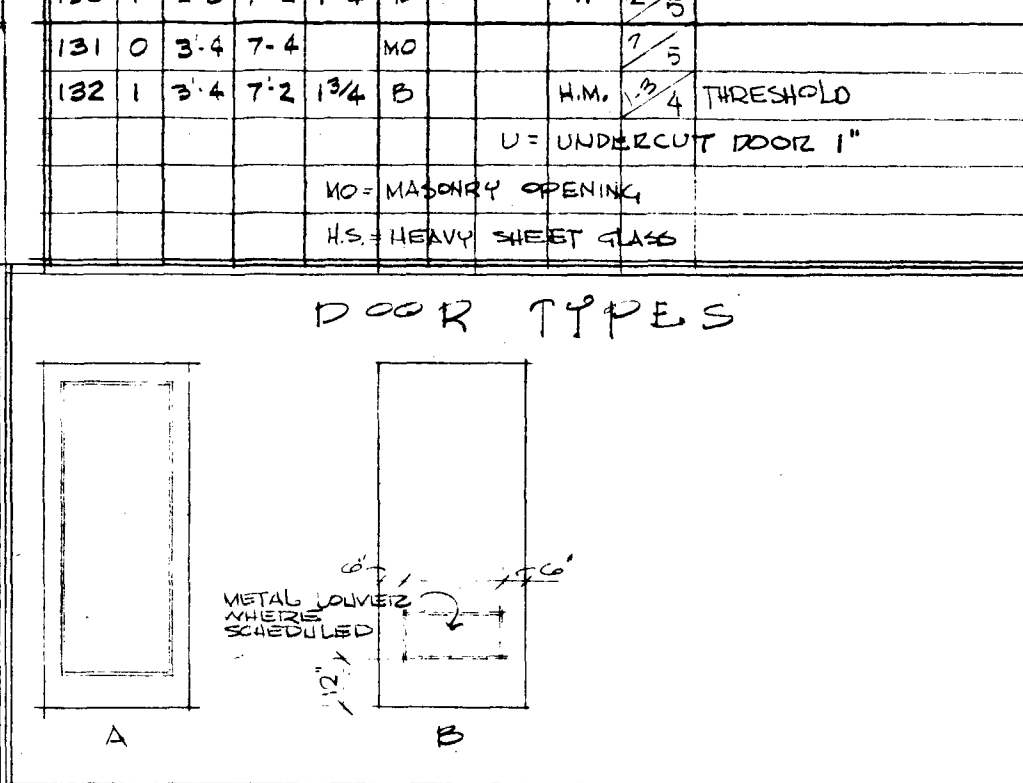 131 0 3'-4 7-4 MO 7/5
132 1 3'-4 7'-2 1 3/4 B H.M. 1-3/4 THRESHOLD
U = UNDERCUT DOOR 1"
MO = MASONRY OPENING
H.S. = HEAVY SHEET GLASS
DOOR TYPES
6" 6"
METAL LOUVER
WHERE
SCHEDULED
12"
A B